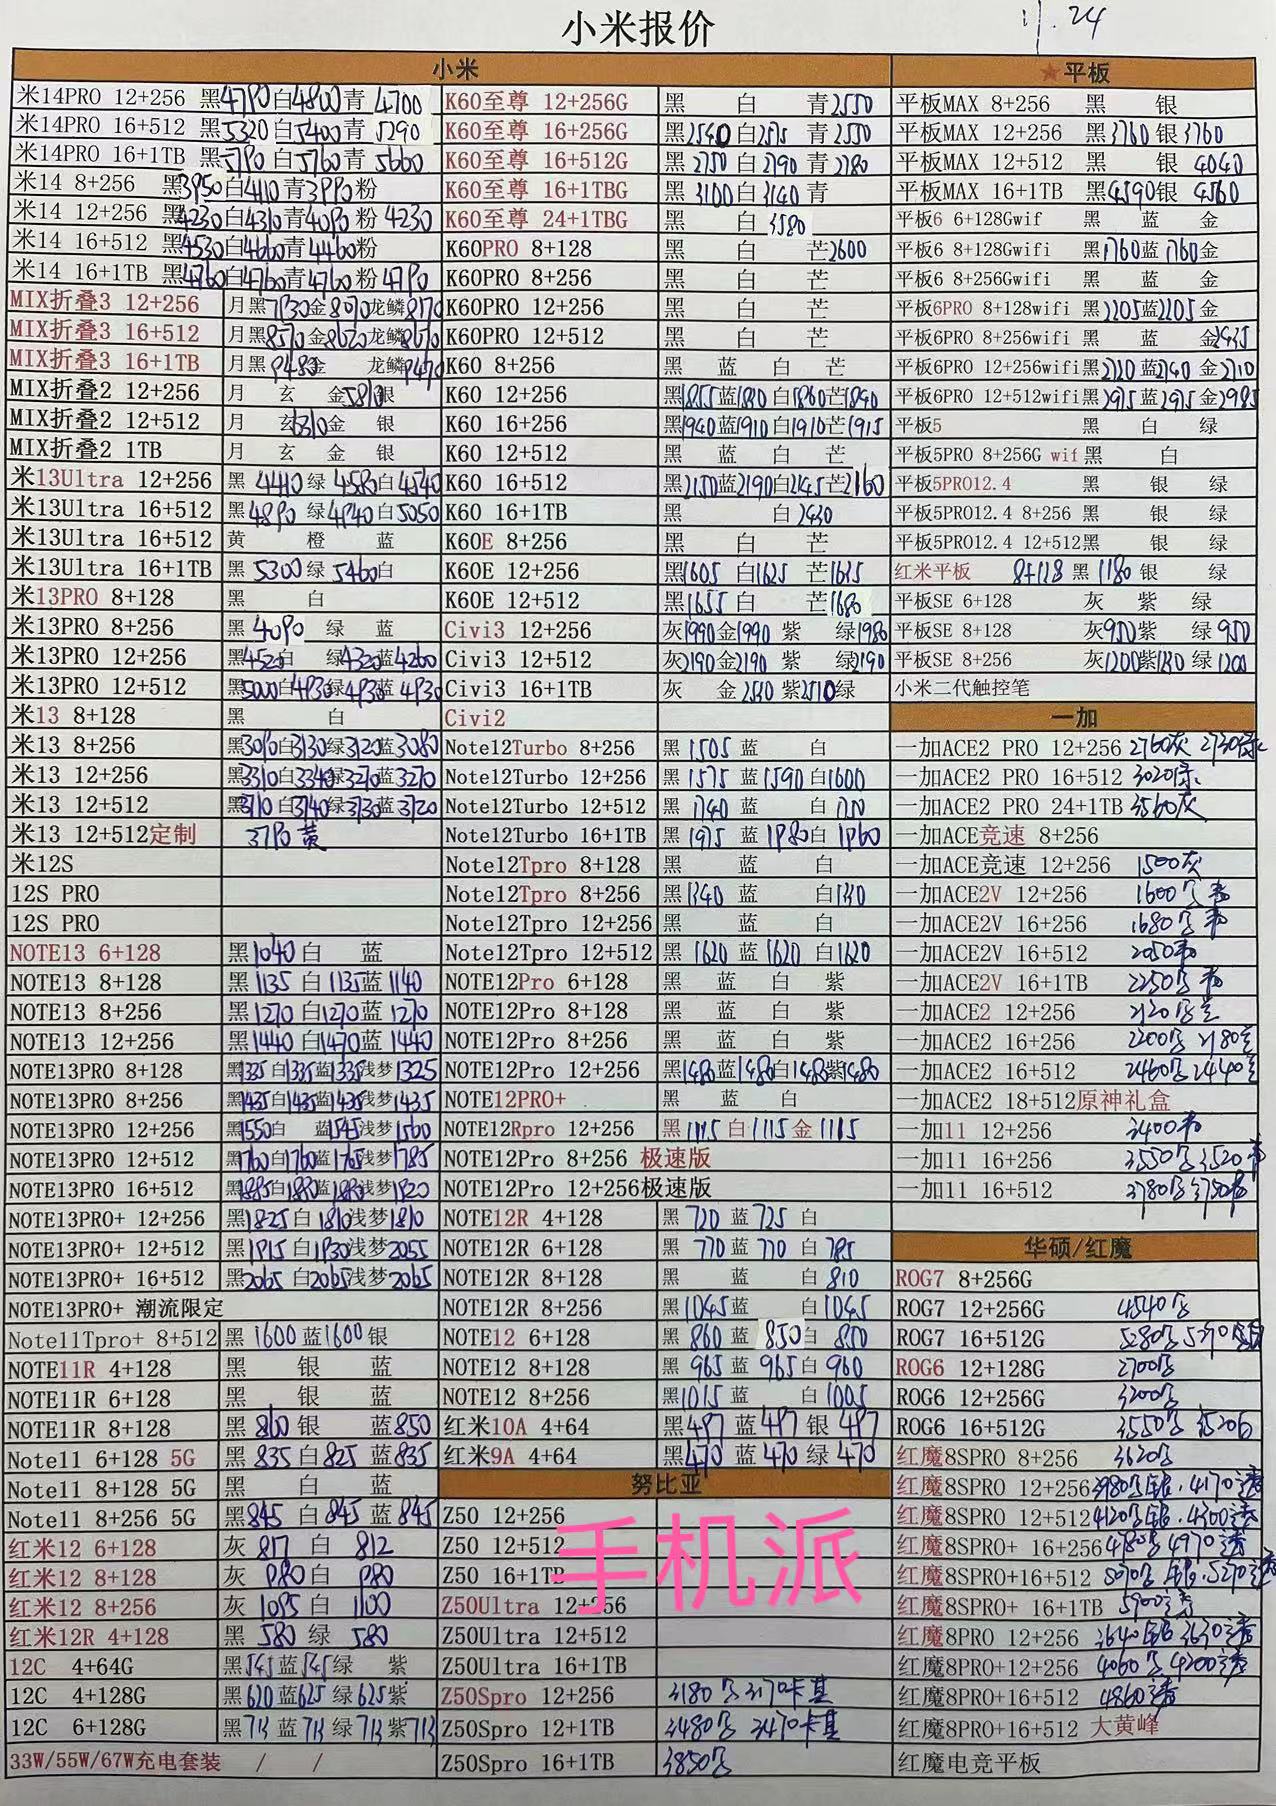 小米报价
11.24
小米
米14PRO 12+256 黑4790白4800青4700
米14PRO 16+512 黑5320白5400青5290
米14PRO 16+1TB 黑5790白5760青5660
米14 8+256 黑3950白4110青3990粉
米14 12+256 黑4230白4310青4090粉4230
米14 16+512 黑4530白4660青4460粉
米14 16+1TB 黑4760白4760青4760粉4790
MIX折叠3 12+256 月黑7930金8070龙鳞8170
MIX折叠3 16+512 月黑8570金8620龙鳞8670
MIX折叠3 16+1TB 月黑9480金 龙鳞9470
MIX折叠2 12+256 月 玄 金5810银
MIX折叠2 12+512 月 玄6310金 银
MIX折叠2 1TB 月 玄 金 银
米13Ultra 12+256 黑4410绿4580白4540
米13Ultra 16+512 黑4890绿4940白5050
米13Ultra 16+512 黄 橙 蓝
米13Ultra 16+1TB 黑5300绿5460白
米13PRO 8+128 黑 白
米13PRO 8+256 黑4090 绿 蓝
米13PRO 12+256 黑4520白 绿4320蓝4260
米13PRO 12+512 黑5000白4930绿4930蓝4930
米13 8+128 黑 白
米13 8+256 黑3090白3130绿3120蓝3080
米13 12+256 黑3310白3340绿3270蓝3270
米13 12+512 黑3710白3740绿3730蓝3720
米13 12+512定制 3790黄
米12S
12S PRO
12S PRO
NOTE13 6+128 黑1040白 蓝
NOTE13 8+128 黑1135白1135蓝1140
NOTE13 8+256 黑1270白1270蓝1270
NOTE13 12+256 黑1440白1470蓝1440
NOTE13PRO 8+128 黑1335白1335蓝1335浅梦1325
NOTE13PRO 8+256 黑1435白1435蓝1435浅梦1435
NOTE13PRO 12+256 黑1550白 蓝1545浅梦1560
NOTE13PRO 12+512 黑1760白1760蓝1765浅梦1785
NOTE13PRO 16+512 黑1885白1880蓝1880浅梦1920
NOTE13PRO+ 12+256 黑1825白1810浅梦1810
NOTE13PRO+ 12+512 黑1915白1930浅梦2055
NOTE13PRO+ 16+512 黑2065白2065浅梦2065
NOTE13PRO+ 潮流限定
Note11Tpro+ 8+512 黑1600蓝1600银
NOTE11R 4+128 黑 银 蓝
NOTE11R 6+128 黑 银 蓝
NOTE11R 8+128 黑860银 蓝850
Note11 6+128 5G 黑835白825蓝835
Note11 8+128 5G 黑 白 蓝
Note11 8+256 5G 黑845白845蓝845
红米12 6+128 灰817白812
红米12 8+128 灰980白980
红米12 8+256 灰1095白1100
红米12R 4+128 黑580绿580
12C 4+64G 黑545蓝545绿 紫
12C 4+128G 黑620蓝625绿625紫
12C 6+128G 黑713蓝713绿713紫713
33W/55W/67W充电套装 / /
K60至尊 12+256G 黑 白 青2550
K60至尊 16+256G 黑2540白2575青2550
K60至尊 16+512G 黑2750白2790青2780
K60至尊 16+1TBG 黑3100白3140青
K60至尊 24+1TBG 黑 白3580
K60PRO 8+128 黑 白 芒2600
K60PRO 8+256 黑 白 芒
K60PRO 12+256 黑 白 芒
K60PRO 12+512 黑 白 芒
K60 8+256 黑 蓝 白 芒
K60 12+256 黑1855蓝1890白1860芒1890
K60 16+256 黑1940蓝1910白1910芒1915
K60 12+512 黑 蓝 白 芒
K60 16+512 黑2150蓝2190白2145芒2160
K60 16+1TB 黑 白2430
K60E 8+256 黑 白 芒
K60E 12+256 黑1605白1625芒1615
K60E 12+512 黑1655白 芒1680
Civi3 12+256 灰1990金1990紫 绿1980
Civi3 12+512 灰2190金2190紫 绿2190
Civi3 16+1TB 灰 金2510紫2510绿
Civi2
Note12Turbo 8+256 黑1505蓝 白
Note12Turbo 12+256 黑1575蓝1590白1600
Note12Turbo 12+512 黑1740蓝 白1750
Note12Turbo 16+1TB 黑1975蓝1980白1960
Note12Tpro 8+128 黑 蓝 白
Note12Tpro 8+256 黑1340 白1310
Note12Tpro 12+256 黑 蓝 白
Note12Tpro 12+512 黑1620蓝1620白1620
NOTE12Pro 6+128 黑 蓝 白 紫
NOTE12Pro 8+128 黑 蓝 白 紫
NOTE12Pro 8+256 黑 蓝 白 紫
NOTE12Pro 12+256 黑1480蓝1480白1480紫1480
NOTE12PRO+ 黑 蓝 白
NOTE12Rpro 12+256 黑1115白1115金1115
NOTE12Pro 8+256 极速版
NOTE12Pro 12+256极速版
NOTE12R 4+128 黑720蓝725白
NOTE12R 6+128 黑770蓝770白785
NOTE12R 8+128 黑 蓝 白810
NOTE12R 8+256 黑1045蓝 白1045
NOTE12 6+128 黑860蓝850白850
NOTE12 8+128 黑965蓝965白960
NOTE12 8+256 黑1015蓝 白1005
红米10A 4+64 黑497蓝497银497
红米9A 4+64 黑470蓝470绿470
努比亚
Z50 12+256
Z50 12+512
Z50 16+1TB
Z50Ultra 12+256
Z50Ultra 12+512
Z50Ultra 16+1TB
Z50Spro 12+256 3180黑3170卡其
Z50Spro 12+1TB 3480黑 3470卡其
Z50Spro 16+1TB 3850黑
手机派
★平板
平板MAX 8+256 黑 银
平板MAX 12+256 黑3760银3760
平板MAX 12+512 黑 银4040
平板MAX 16+1TB 黑4590银4560
平板6 6+128Gwif 黑 蓝 金
平板6 8+128Gwifi 黑1760蓝1760金
平板6 8+256Gwifi 黑 蓝 金
平板6PRO 8+128wifi 黑2205蓝2205金
平板6PRO 8+256wifi 黑 蓝 金2435
平板6PRO 12+256wifi黑2720蓝2740金2710
平板6PRO 12+512wifi黑2975蓝2975金2985
平板5 黑 白 绿
平板5PRO 8+256G wif黑 白
平板5PRO12.4 黑 银 绿
平板5PRO12.4 8+256 黑 银 绿
平板5PRO12.4 12+512黑 银 绿
红米平板 8+128 黑1180银 绿
平板SE 6+128 灰 紫 绿
平板SE 8+128 灰950紫 绿950
平板SE 8+256 灰1200紫1230绿1200
小米二代触控笔
一加
一加ACE2 PRO 12+256 2760灰 2730绿
一加ACE2 PRO 16+512 3020绿
一加ACE2 PRO 24+1TB 3560灰
一加ACE竞速 8+256
一加ACE竞速 12+256 1500灰
一加ACE2V 12+256 1600黑
一加ACE2V 16+256 1680黑
一加ACE2V 16+512 2050
一加ACE2V 16+1TB 2250黑
一加ACE2 12+256 2120黑
一加ACE2 16+256 2200黑 2180
一加ACE2 16+512 2460黑 2440
一加ACE2 18+512原神礼盒
一加11 12+256 3400
一加11 16+256 3550黑 3520
一加11 16+512 3780黑 3750
华硕/红魔
ROG7 8+256G
ROG7 12+256G 4540黑
ROG7 16+512G 5280黑 5270
ROG6 12+128G 2700黑
ROG6 12+256G 3200黑
ROG6 16+512G 3550黑 3520白
红魔8SPRO 8+256 3620黑
红魔8SPRO 12+256 3980黑银.4170透
红魔8SPRO 12+512 4120黑银.4300透
红魔8SPRO+ 16+256 4780黑 4970透
红魔8SPRO+16+512 5090黑 银.5290透
红魔8SPRO+ 16+1TB 5900透
红魔8PRO 12+256 3640银3630透
红魔8PRO+12+256 4060黑 4200透
红魔8PRO+16+512 4860透
红魔8PRO+16+512 大黄峰
红魔电竞平板